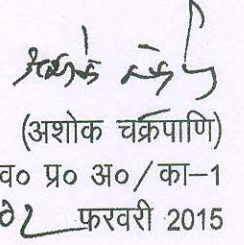 (अशोक चक्रपाणि)
व० प्र० अ० / का–1
फरवरी 2015